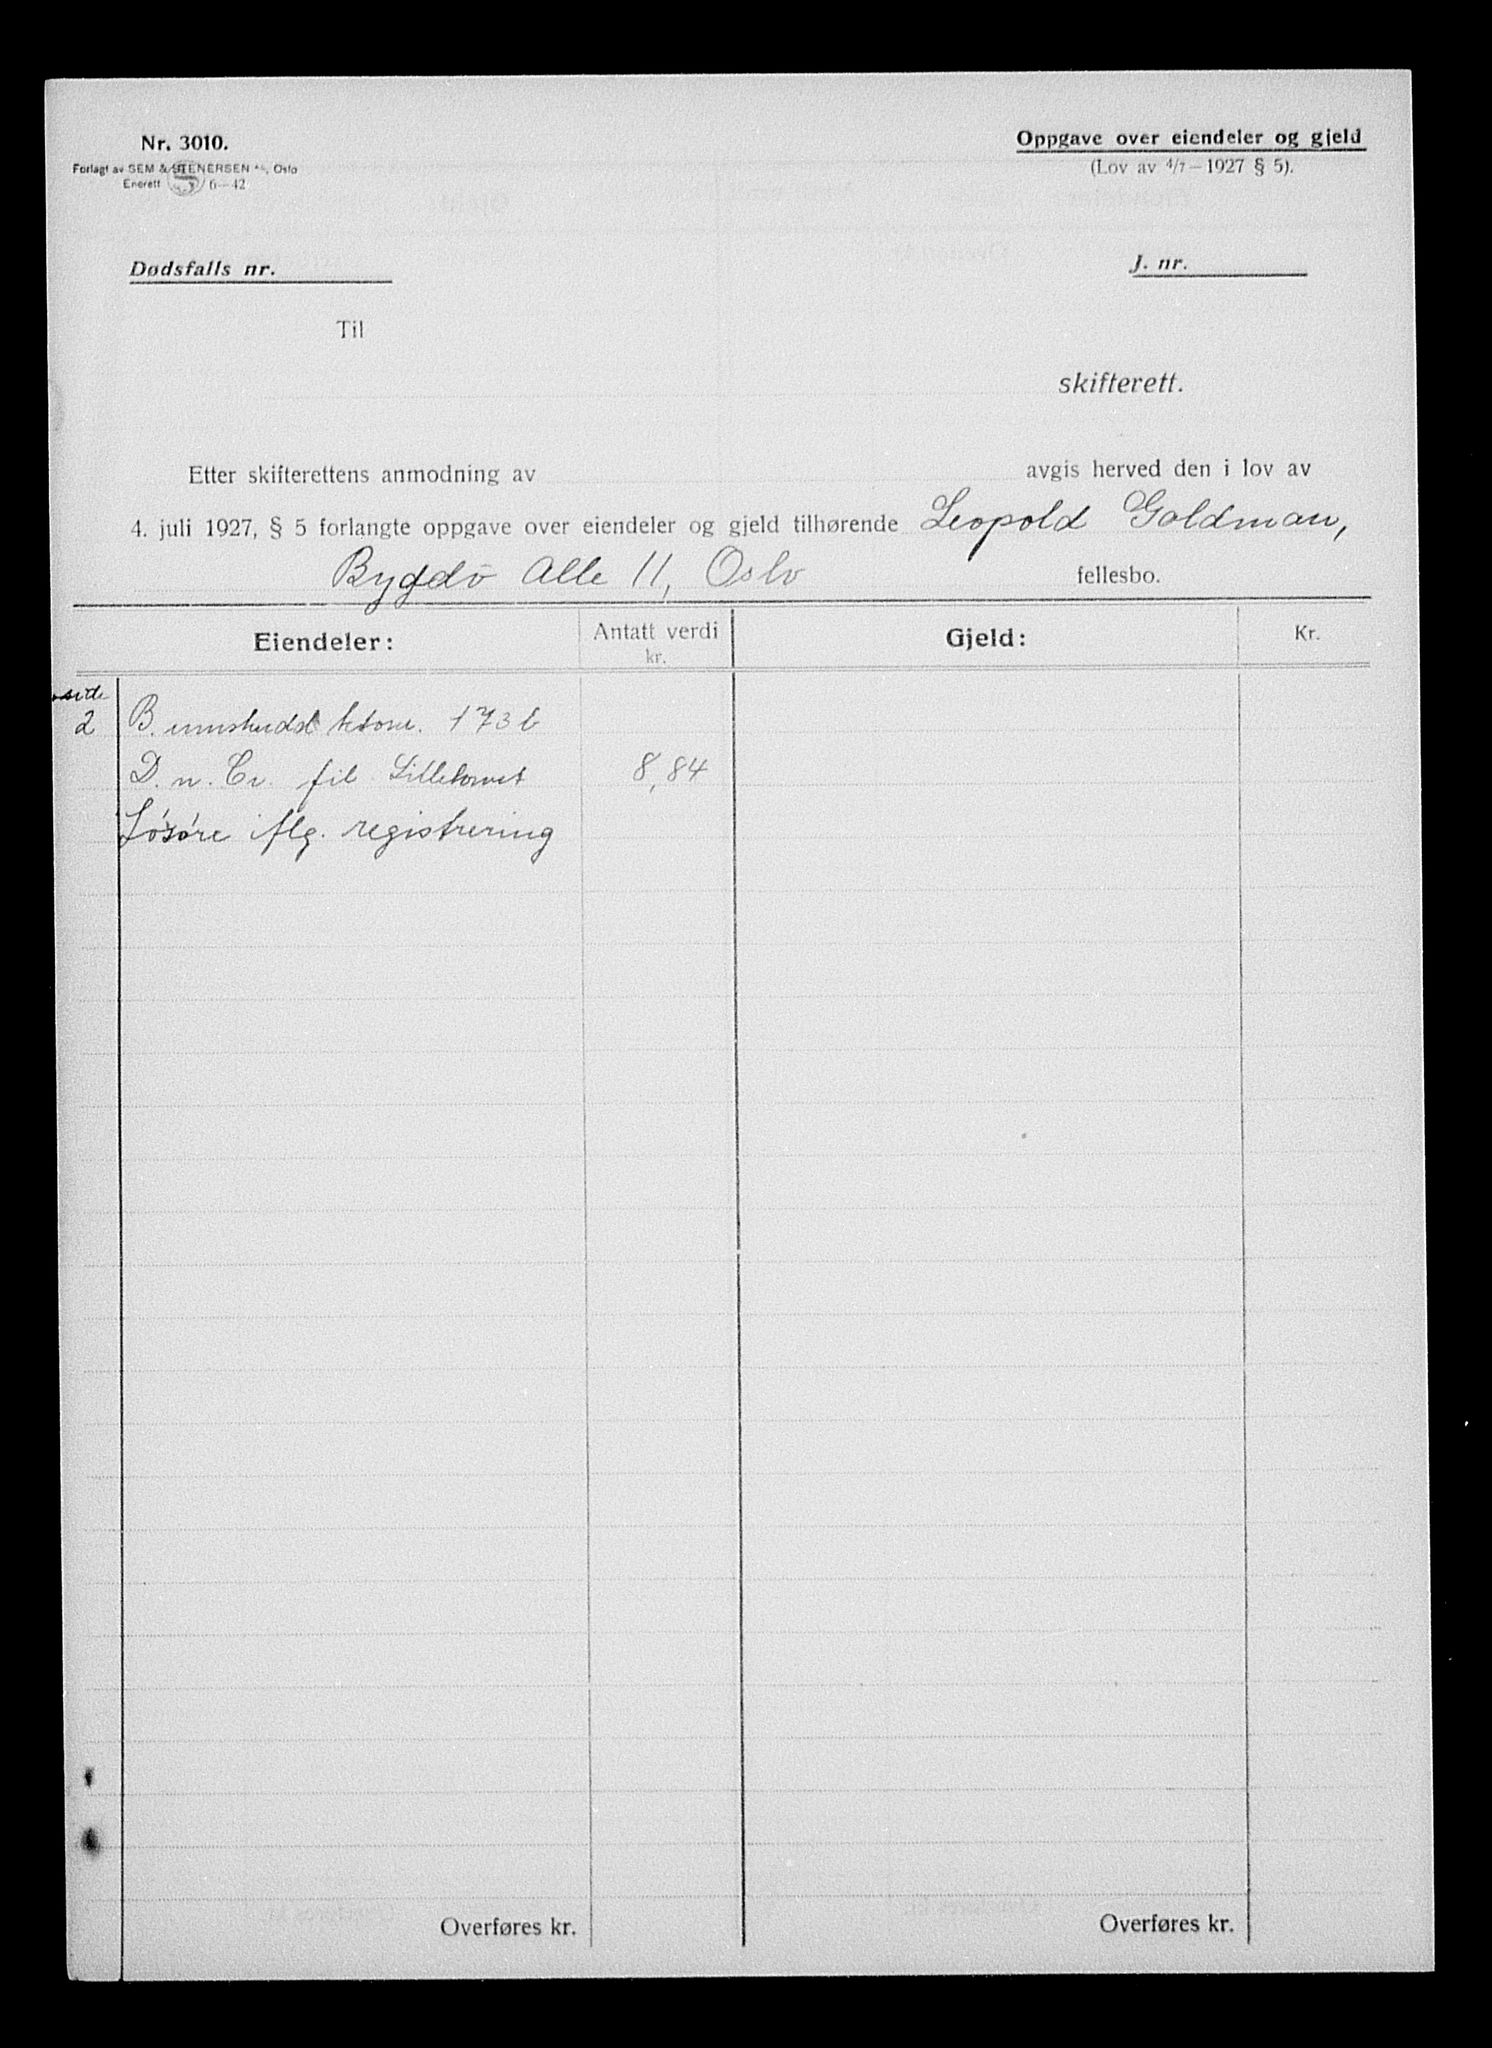 Nr. 3010.
Forlagt av SEM & STENERSEN A/S, Oslo
Enerett 6—42
Oppgave over eiendeler og gjeld
(Lov av 4/7 — 1927 § 5).
Dødsfalls nr.
J. nr.
Til
skifterett.
Etter skifterettens anmodning av avgis herved den i lov av
4. juli 1927, § 5 forlangte oppgave over eiendeler og gjeld tilhørende Leopold Goldman,
Bygdö Alle 11, Oslo fellesbo.
Eiendeler: Antatt verdi kr. Gjeld: Kr.
side
2 B. innskudd 173 b
D. n. Cr. fil Lilletorvet 8,84
Løsøre iflg. registrering
Overføres kr. Overføres kr.